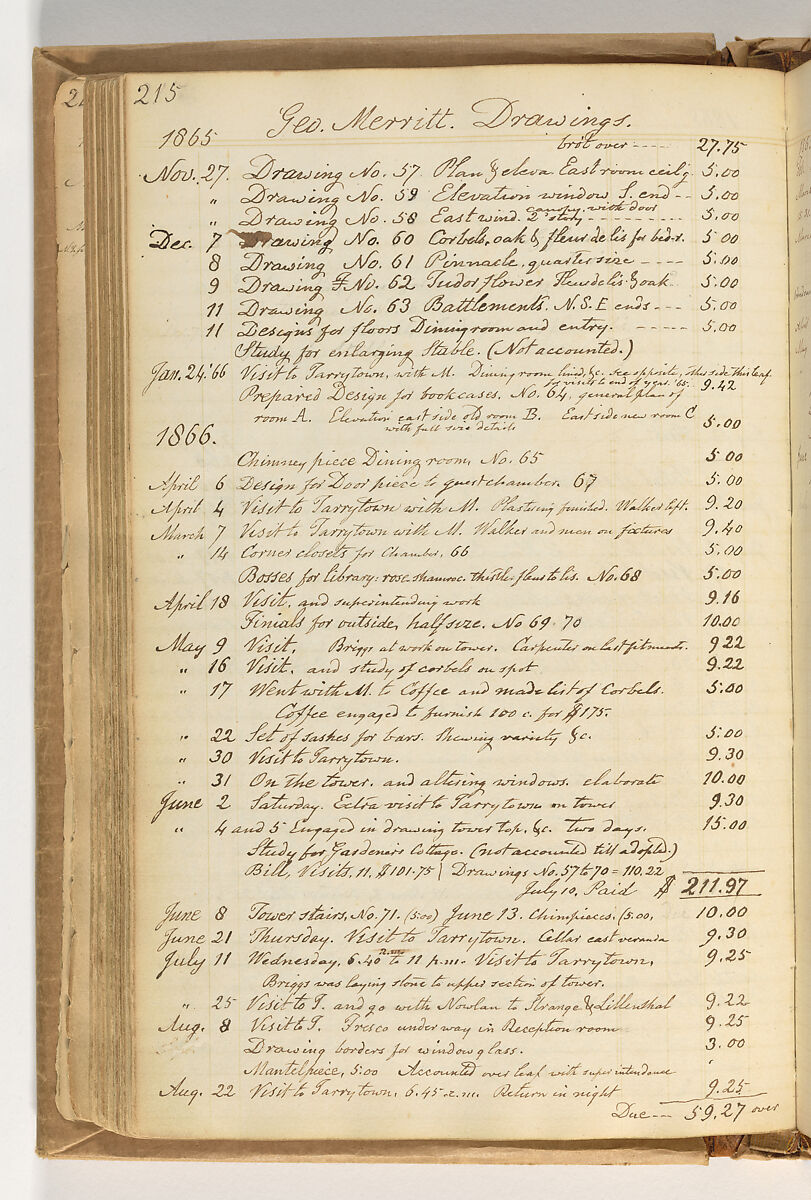 215
Geo. Merritt. Drawings.
1865 brôt over ---- 27.75
Nov. 27. Drawing No. 57 Plan & eleva. East room ceilg 5.00
" Drawing No. 59 Elevation window S. end -- 5.00
" Drawing No. 58 East wind. 2d story with door ---------- 5.00
Dec. 7 Drawing No. 60 Corbels, oak & fleur de lis for bed-r. 5 00
8 Drawing No. 61 Pinnacle, quarter size ---- 5.00
9 Drawing No. 62 Tudor flower Fleur delis & oak 5.00
11 Drawing No. 63 Battlements. N.S.E ends --- 5.00
11 Designs for floors Dining room and entry. ----- 5.00
Study for enlarging Stable. (Not accounted.)
Jan. 24. '66 Visit to Tarrytown, with M. Dining room lined, &c. see opposite, this side this leaf
for visits to end of year. '65. 9.42
Prepared Design for bookcases. No. 64, general plan of
room A. Elevation east side old room B. East side new room C 5.00
with full size details
1866.
Chimney piece Dining room, No. 65 5 00
April 6 Design for Door piece to guest chamber. 67 5.00
April 4 Visit to Tarrytown with M. Plastering finished. Walker left. 9.20
March 7 Visit to Tarrytown with M. Walker and men on fixtures 9.40
" 14 Corner closets for Chamber, 66 5.00
Bosses for library: rose shamroc. thistle. fleur to lis. No. 68 5.00
April 18 Visit, and superintending work 9.16
Finials for outside, half size. No 69. 70 10.00
May 9 Visit. Briggs at work on tower. Carpenter on last fitments. 9 22
" 16 Visit, and study of corbels on spot 9.22
" 17 Went with M. to Coffee and made list of Corbels. 5.00
Coffee engaged to furnish 100 c. for $175.
" 22 Set of sashes for bars. Shewing variety &c. 5.00
" 30 Visit to Tarrytown. 9.30
" 31 On the tower, and altering windows. elaborate 10.00
June 2 Saturday. Extra visit to Tarrytown on tower 9.30
" 4 and 5 Engaged in drawing tower top, &c. two days. 15.00
Study for Gardener's Cottage. (not accounted till adopted.)
Bill, Visits, 11, $101.75 | Drawings No. 57 to 70 = 110.22
July 10, Paid $ 211.97
June 8 Tower stairs, No. 71. (5:00) June 13. Chimpiaces. (5.00, 10.00
June 21 Thursday. Visit to Tarrytown. Cellar east veranda 9.30
July 11 Wednesday, 6.40 a.m. to 11 p.m. Visit to Tarrytown, 9.25
Briggs was laying stone to upper section of tower.
" 25 Visit to T. and go with Nowlan to Strange & Lillenthal 9.22
Aug. 8 Visit to T. Fresco under way in Reception room 9.25
Drawing borders for window glass. 3.00
Mantelpiece, 5:00 Accounted over leaf with superintendence
Aug. 22 Visit to Tarrytown, 6.45 a.m. Return in night 9.25
Due -- 59.27 over